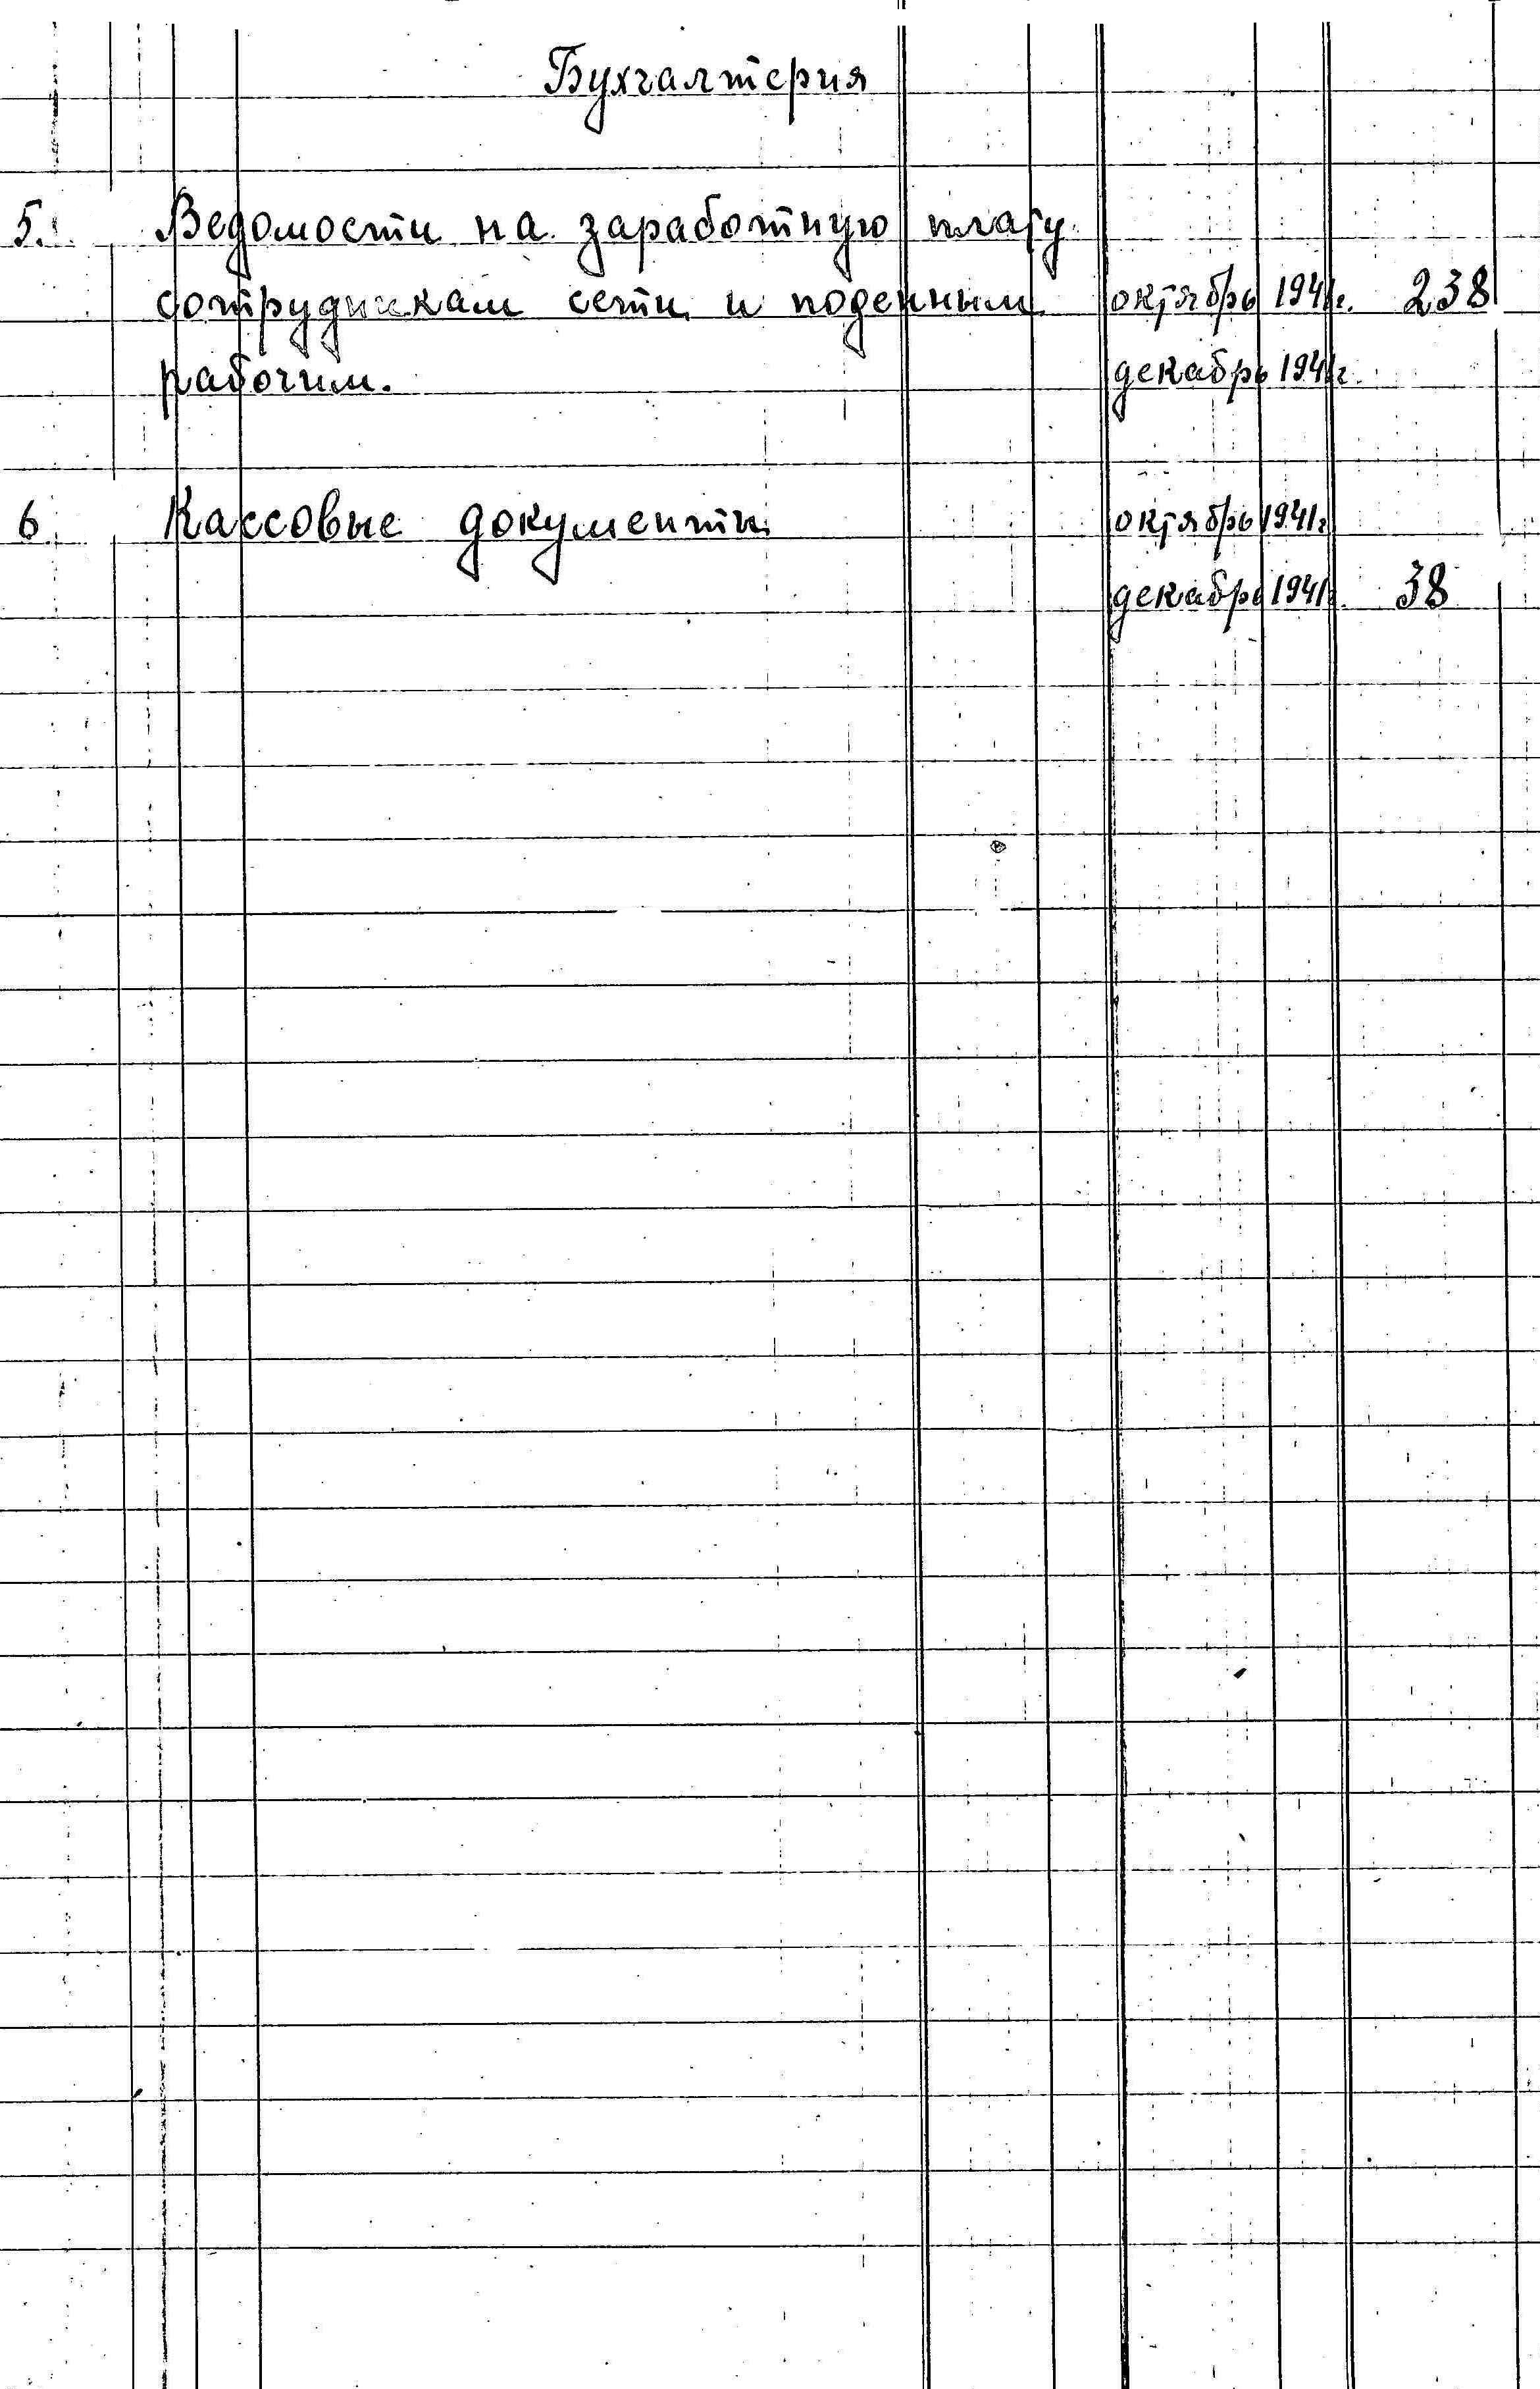 Бухгалтерия
5. Ведомости на заработную плату
сотрудникам сети и поденным октябрь 1941г. 238
рабочим. декабрь 1941г.
6 Кассовые документы октябрь 1941г
декабрь 1941г. 38